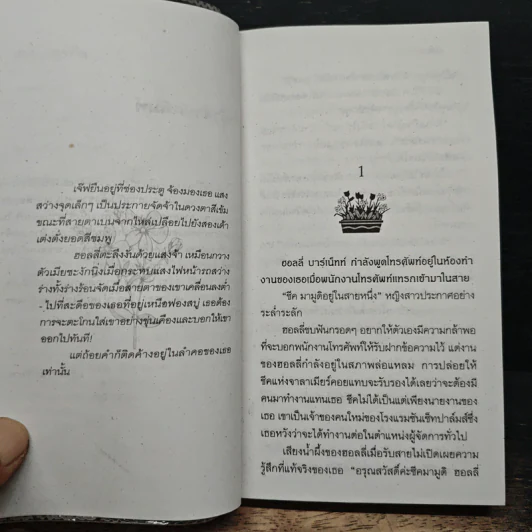 เจ๊ฟยืนอยู่ที่ช่องประตู จ้องมองเธอ แสง
สว่างจุดเล็กๆ เป็นประกายจัดจ้าในดวงตาสีเข้ม
ขณะที่สายตาเบนจากไหล่เปลือยไปยังสองเต้า
เต่งตั้งยอดสีชมพู
ฮอลลี่ตะลึงงันด้วยแสงจ้า เหมือนกวาง
ตัวเมียชะงักนิ่งเมื่อกระทบแสงไฟหน้ารถสว่าง
ร่างทั้งร่างร้อนจัดเมื่อสายตาของเขาเคลื่อนลงต่ำ
- ไปที่สะดือของเธอที่อยู่เหนือฟองสบู่ เธอต้อง
การจะตะโกนใส่เขาอย่างขุ่นเคืองและบอกให้เขา
ออกไปทันที!
แต่ถ้อยคำก็ติดค้างอยู่ในลำคอของเธอ
เท่านั้น
1
ฮอลลี่ บาร์เน็ทท์ กำลังพูดโทรศัพท์อยู่ในห้องทำ
งานของเธอเมื่อพนักงานโทรศัพท์แทรกเข้ามาในสาย
"ชีค มามูดิอยู่ในสายหนึ่ง" หญิงสาวประกาศอย่าง
ระล่ำระลัก
ฮอลลี่ขบฟันกรอดๆ อยากให้ตัวเองมีความกล้าพอ
ที่จะบอกพนักงานโทรศัพท์ให้รับฝากข้อความไว้ แต่งาน
ของฮอลลี่กำลังอยู่ในสภาพล่อแหลม การปล่อยให้
ชีคแห่งจาลาเมียร์คอยแทบจะรับรองได้เลยว่าจะต้องมี
คนมาทำงานแทนเธอ ชีคไม่ได้เป็นแต่เพียงนายงานของ
เธอ เขาเป็นเจ้าของคนใหม่ของโรงแรมซันเซ็ทปาล์มส์ซึ่ง
เธอหวังว่าจะได้ทำงานต่อในตำแหน่งผู้จัดการทั่วไป
เสียงน้ำผึ้งของฮอลลี่เมื่อรับสายไม่เปิดเผยความ
รู้สึกที่แท้จริงของเธอ "อรุณสวัสดิ์ค่ะชีคมามูดิ ฮอลลี่